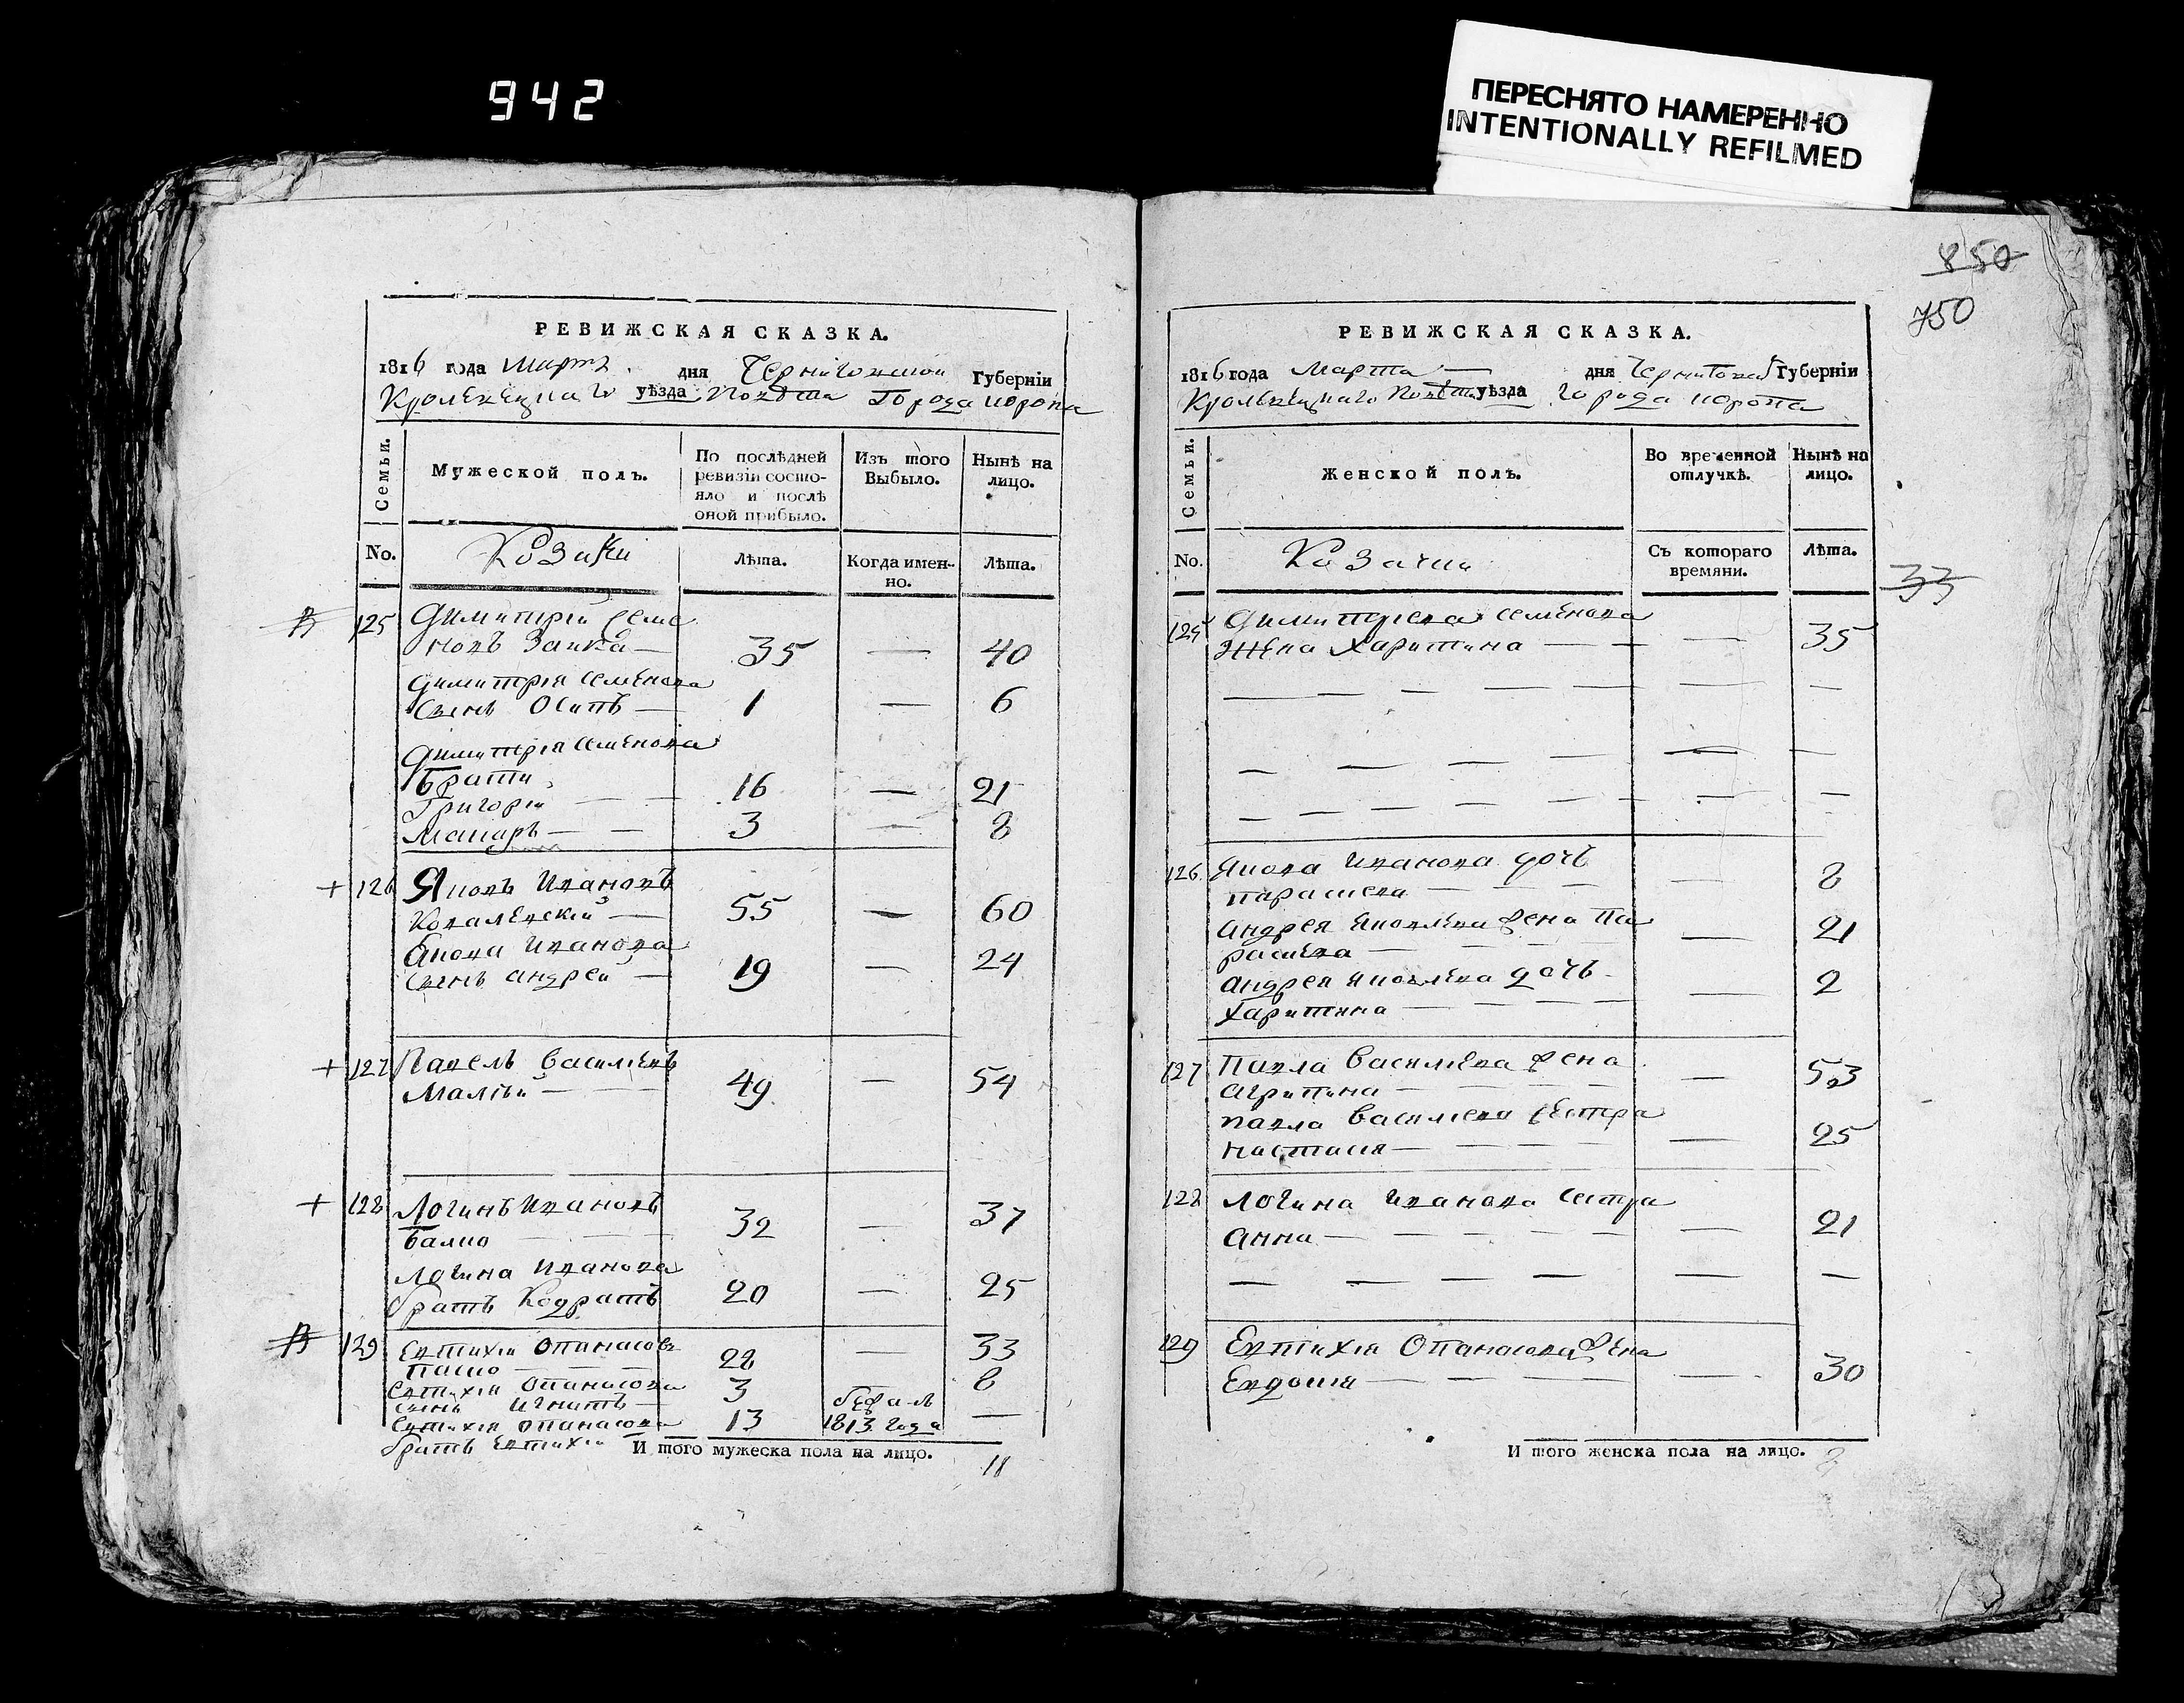 942
ПЕРЕСНЯТО НАМЕРЕННО
INTENTIONALLY REFILMED
850
750
РЕВИЖСКАЯ СКАЗКА.
1816 года Март дня Черниговской Губерніи
Кролевецкаго уѣзда Повѣта Города Коропа
Семьи.
Мужеской полъ.
По послѣдней ревизіи состо-
яло и послѣ
оной прибыло.
Изъ того
Выбыло.
Нынѣ на
лицо.
No.
Козаки
Лѣта.
Когда имен-
но.
Лѣта.
125 Димитрій Семе
новъ Заика — 35 — 40
Димитрія Семенова
Сынъ Осипъ — 1 — 6
Димитрія Семенова
Брати
Григорій — — 16 — 21
Макаръ — — 3 — 8
+ 126 Яковъ Ивановъ
Ковалевскій — 55 — 60
Якова Иванова
Сынъ Андрей — 19 — 24
+ 127 Павелъ Василіевъ
Малій — 49 — 54
+ 128 Логинъ Ивановъ
Балко — — — 32 — 37
Логина Иванова
братъ Кодратъ 20 — 25
129 Евтихій Опанасовъ
Паско — — — 28 — 33
Евтихія Опанасова
Сынъ Игнатъ — 3 — 8
Евтихія Опанасова
братъ Евтихій 13 бежалъ
1813 года —
И того мужеска пола на лицо. 11
РЕВИЖСКАЯ СКАЗКА.
1816 года Марта — дня Черниговской Губерніи
Кролевецкаго Повѣта уѣзда города Коропа
Семьи.
Женской полъ.
Во временной
отлучкѣ.
Нынѣ на
лицо.
No.
Козачки
Съ котораго
времяни.
Лѣта.
33
125 Димитріева Семенова
Жена Харитина — — — 35
126 Якова Иванова дочь
Параскева — — — — 8
Андрея Яковлева жена Па
расkева — — — — 21
Андрея Яковлева дочь
Харитина — — — — 2
127 Павла Василіева жена
Агрипина — — — — 53
Павла Василіева сестра
Настасія — — — — 25
128 Логина Иванова сестра
Анна — — — — — 21
129 Евтихія Опанасова жена
Евдокія — — — — — 30
И того женска пола на лицо. 8